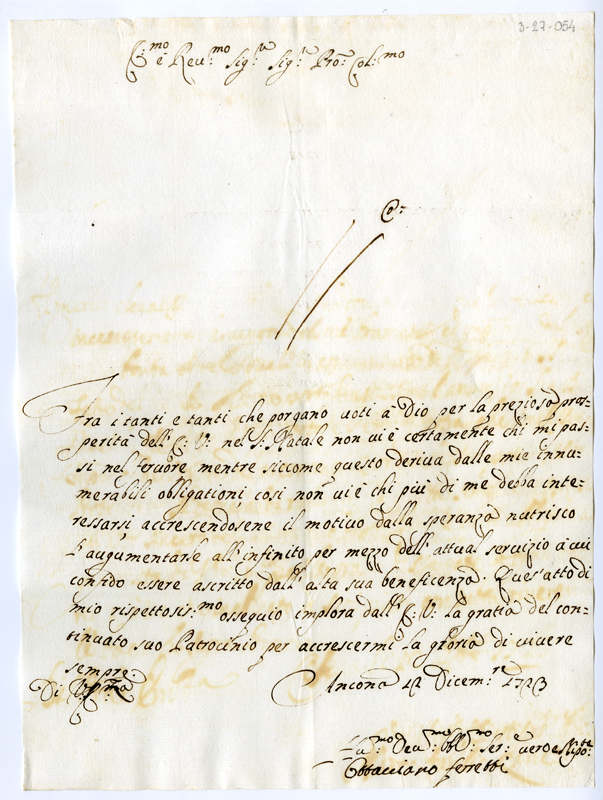 3-27-054
E:mo e Reu:mo Sig:r Sig:r Pro:n Col:mo
Fra i tanti e tanti che porgano uoti à Dio per la preziosa pros-
perità dell' E: V: nel S: Natale non ui è certamente chi mi pas-
si nel feruore mentre siccome questo deriua dalle mie innu-
merabili obligationi, cosi non ui è chi più di me debba inte-
ressarsi, accrescendosene il motiuo dalla speranza nutrisco
d'augumentarle all' infinito per mezzo dell' attual seruizio à cui
confido essere ascritto dall' alta sua beneficenza. Ques' atto di
mio rispettosis:mo ossequio implora dall' E: V: la gratia del con-
tinuato suo Patrocinio per accrescermi la gloria di uiuere
sempre.
Di V: Em:za Ancona 12 Dicem:re 1723
Hu:mo Deu:mo Obl:mo Ser:e uero e
Ottauiano Ferretti